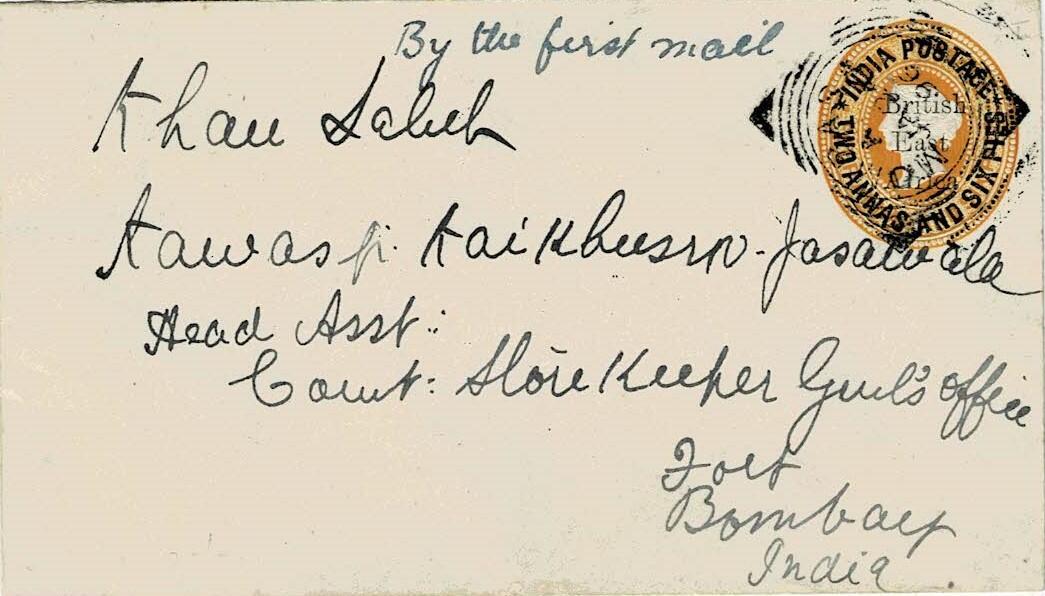 By the first mail
INDIA POSTAGE
TWO ANNAS AND SIX PIES
British
East
Africa
Khan Saheb
Kawasji Kaikhusru Jasawala
Head Asst:
Comt: Store Keeper Genl's office
Fort
Bombay
India